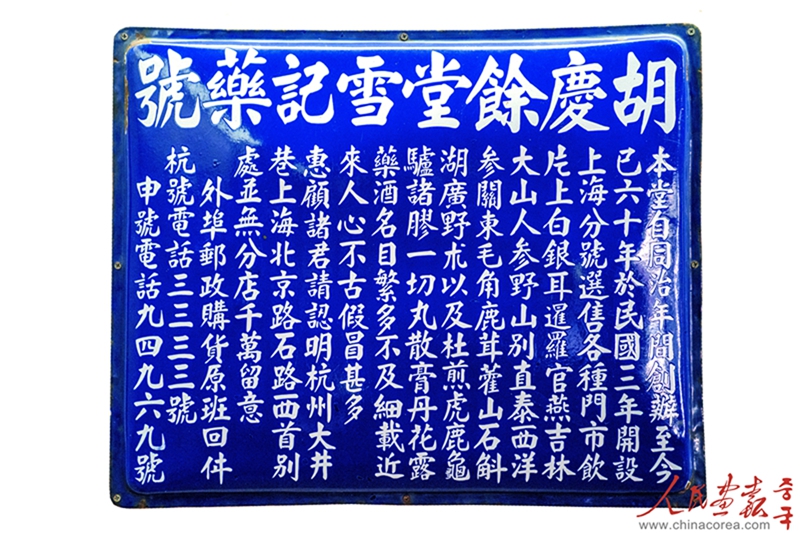 胡慶餘堂雪記藥號
本堂自同治年間創辦至今
已六十年於民國三年開設
上海分號選售各種門市飲
片上白銀耳暹羅官燕吉林
大山人参野山别直泰西洋
参關東毛角鹿茸藿山石斛
湖廣野朮以及杜煎虎鹿龜
驢諸膠一切丸散膏丹花露
藥酒名目繁多不及細載近
來人心不古假冒甚多
惠顧諸君請認明杭州大井
巷上海北京路石路西首别
處並無分店千萬留意
外埠郵政購貨原班回件
杭號電話三三三三號
申號電話九四九六九號
人民畫報 중국
www.chinacorea.com